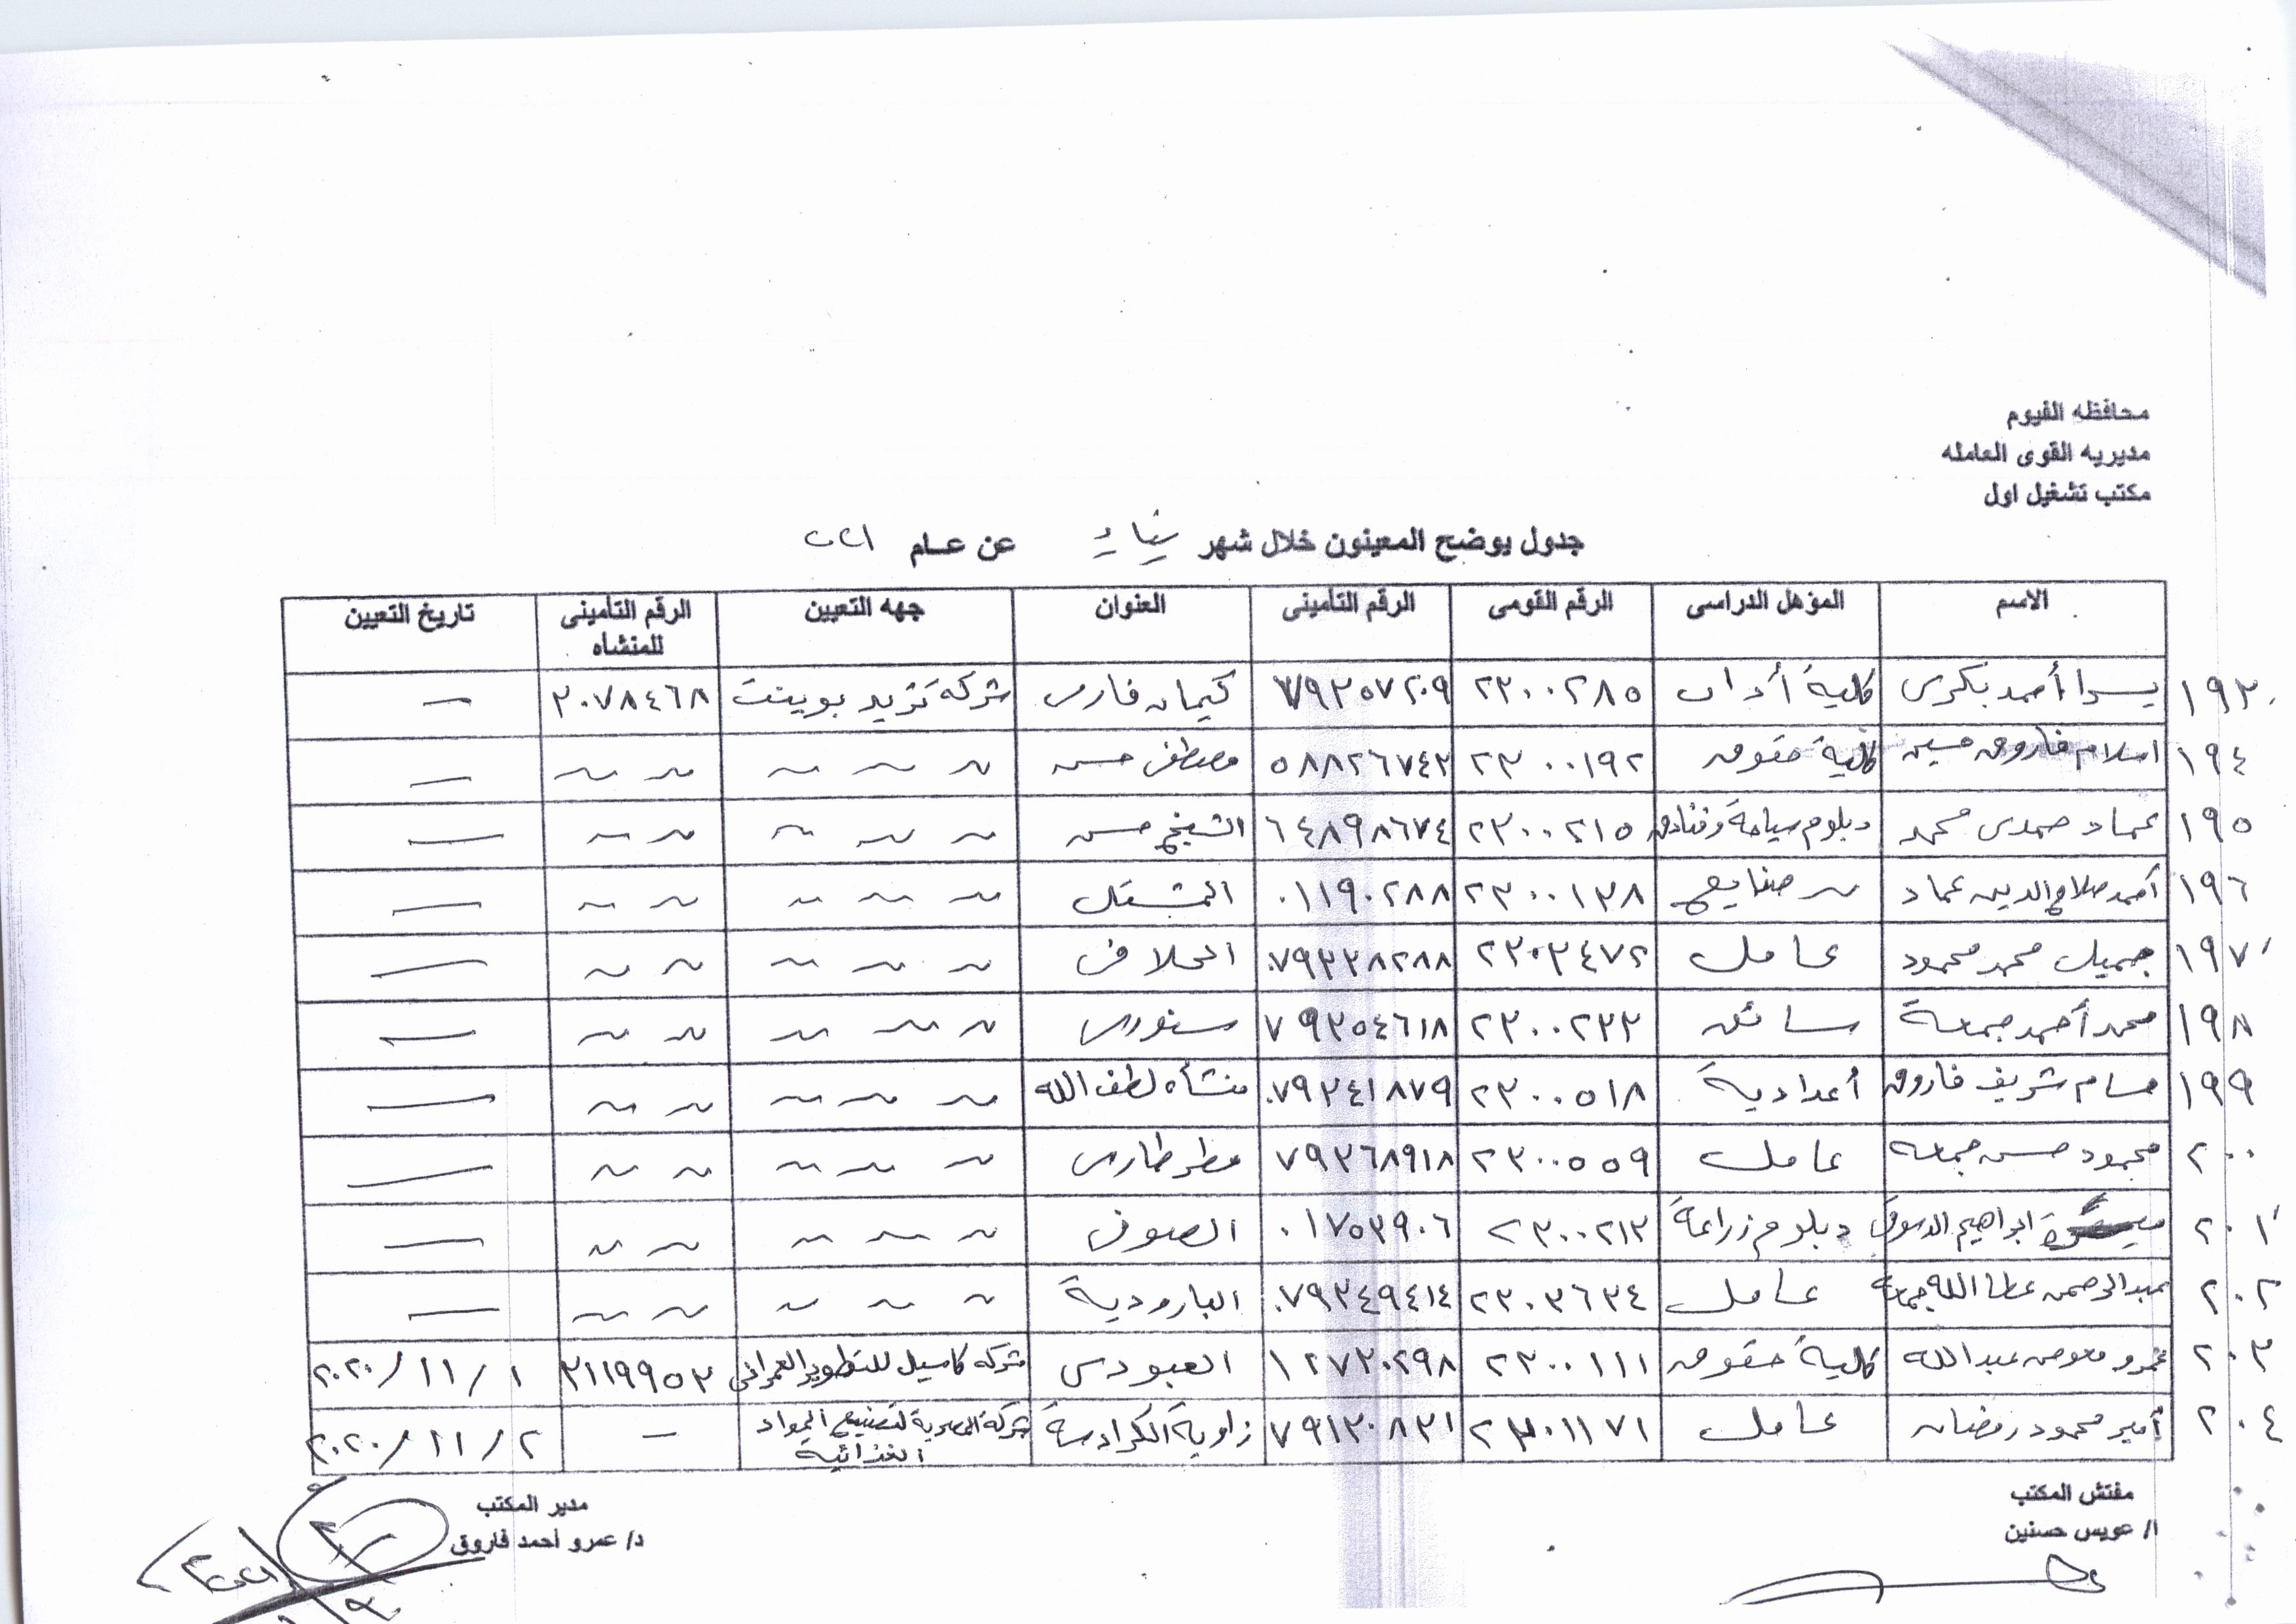 محافظه الفيوم
مديريه القوى العامله
مكتب تشغيل اول
جدول يوضح المعينون خلال شهر يناير عن عام ٢٠٢١
الاسم المؤهل الدراسى الرقم القومى الرقم التأمينى العنوان جهه التعيين الرقم التأمينى للمنشاه تاريخ التعيين
١٩٣ يسرا أحمد بكرى كلية أداب ٢٣٠٠٢٨٥ ٧٩٣٥٧٢٠٩ كيمان فارس شركة تريد بوينت ٣٠٧٨٤٦٨ –
١٩٤ اسلام فاروق حسين كلية حقوق ٢٣٠٠١٩٢ ٥٨٨٢٦٧٤٣ مصطفى حسن ~ ~ ~ ~ ~ –
١٩٥ عماد حمدى محمد دبلوم سياحة وفنادق ٢٣٠٠٢١٥ ٦٤٨٩٨٦٧٤ الشيخ حسن ~ ~ ~ ~ ~ –
١٩٦ أحمد صلاح الدين عماد ~ صنايع ٢٣٠٠١٣٨ ٠١١٩٠٢٨٨ ~ ~ ~ ~ ~ –
١٩٧ جميل محمد محمود عامل ٢٣٠٣٤٧٢ ٠٧٩٣٣٨٢٨٨ ~ ~ ~ ~ ~ –
١٩٨ محمد أحمد جمعة سائق ٢٣٠٠٢٣٣ ٧٩٣٥٤٦١٨ سنورس ~ ~ ~ ~ ~ –
١٩٩ حسام شريف فاروق أعدادية ٢٣٠٠٥١٨ ٠٧٩٣٤١٨٧٩ منشأه لطف الله ~ ~ ~ ~ ~ –
٢٠٠ محمود حسن جمعه عامل ٢٣٠٠٥٥٩ ٧٩٣٦٨٩١٨ مطر طارس ~ ~ ~ ~ ~ –
٢٠١ ابراهيم الدسوقى دبلوم زراعة ٢٣٠٠٢١٣ ٠١٧٥٣٩٠٦ الصوفى ~ ~ ~ ~ ~ –
٢٠٢ عبدالرحمن عطا الله جمعة عامل ٢٣٠٣٦٣٤ ٠٧٩٣٤٩٤١٤ البارودية ~ ~ ~ ~ ~ –
٢٠٣ عمرو معوض عبدالله كلية حقوق ٢٣٠٠١١١ ١٢٧٣٠٢٩٨ العبودى شركه كاسيل للتطوير العمرانى ٣١١٩٩٥٣ ٢٠٢٠/١١/١
٢٠٤ أمير محمود رمضان عامل ٢٣٠١١٧١ ٧٩١٣٠٨٣١ زاوية الكرادسة شركة المصرية لتصنيع المواد الغذائية – ٢٠٢٠/١١/٢
مفتش المكتب
ا/ عويس حسنين
مدير المكتب
د/ عمرو أحمد فاروق